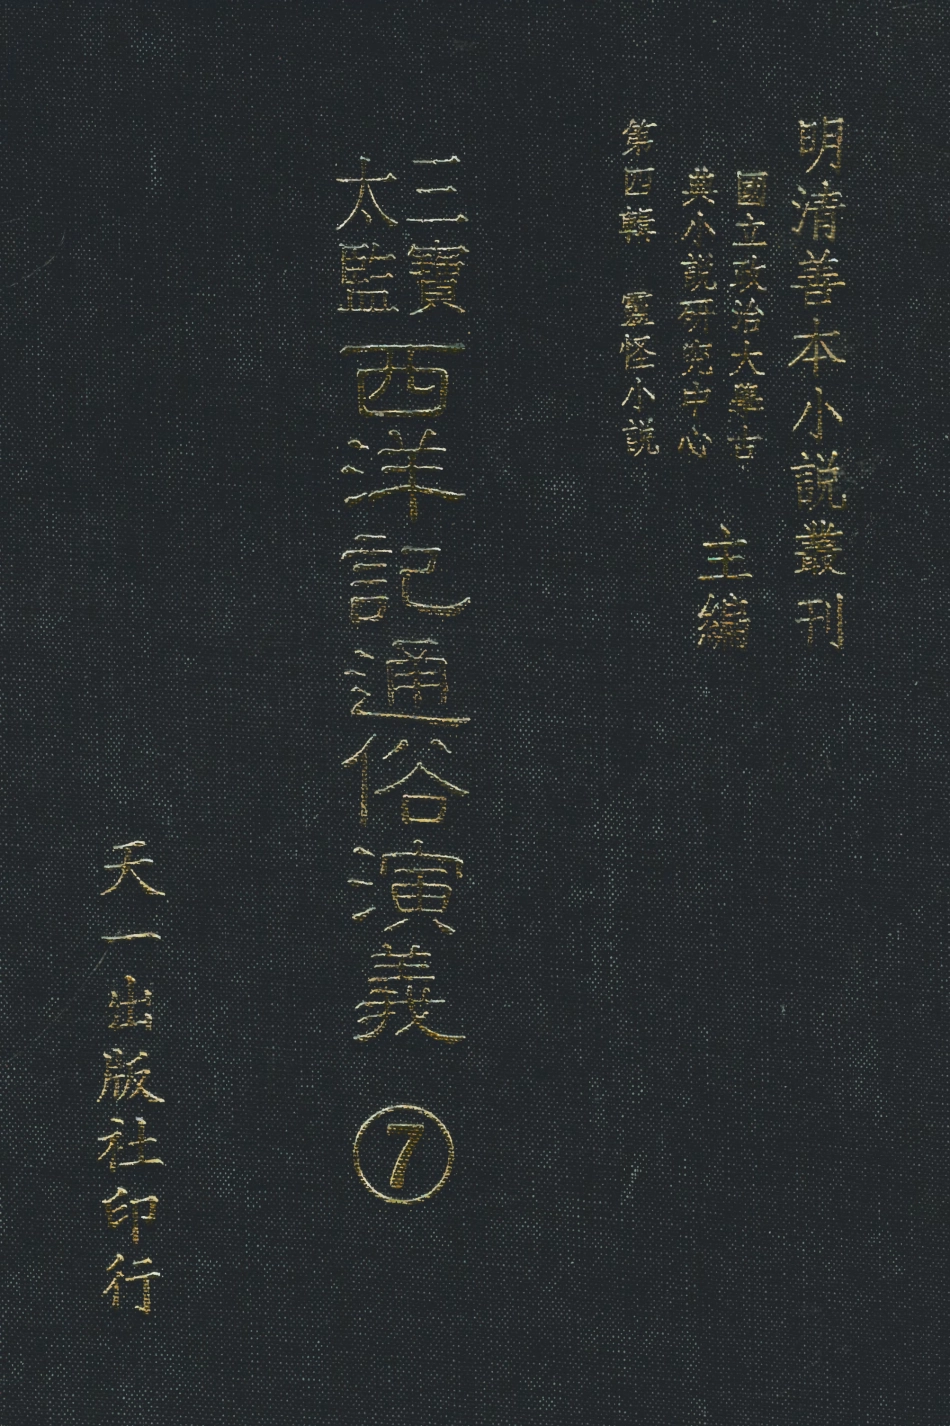 明清善本小説叢刊
國立政治大學古
典小説研究中心
主編
第四輯　靈怪小説
三寶
太監
西洋記通俗演義
7
天一出版社印行